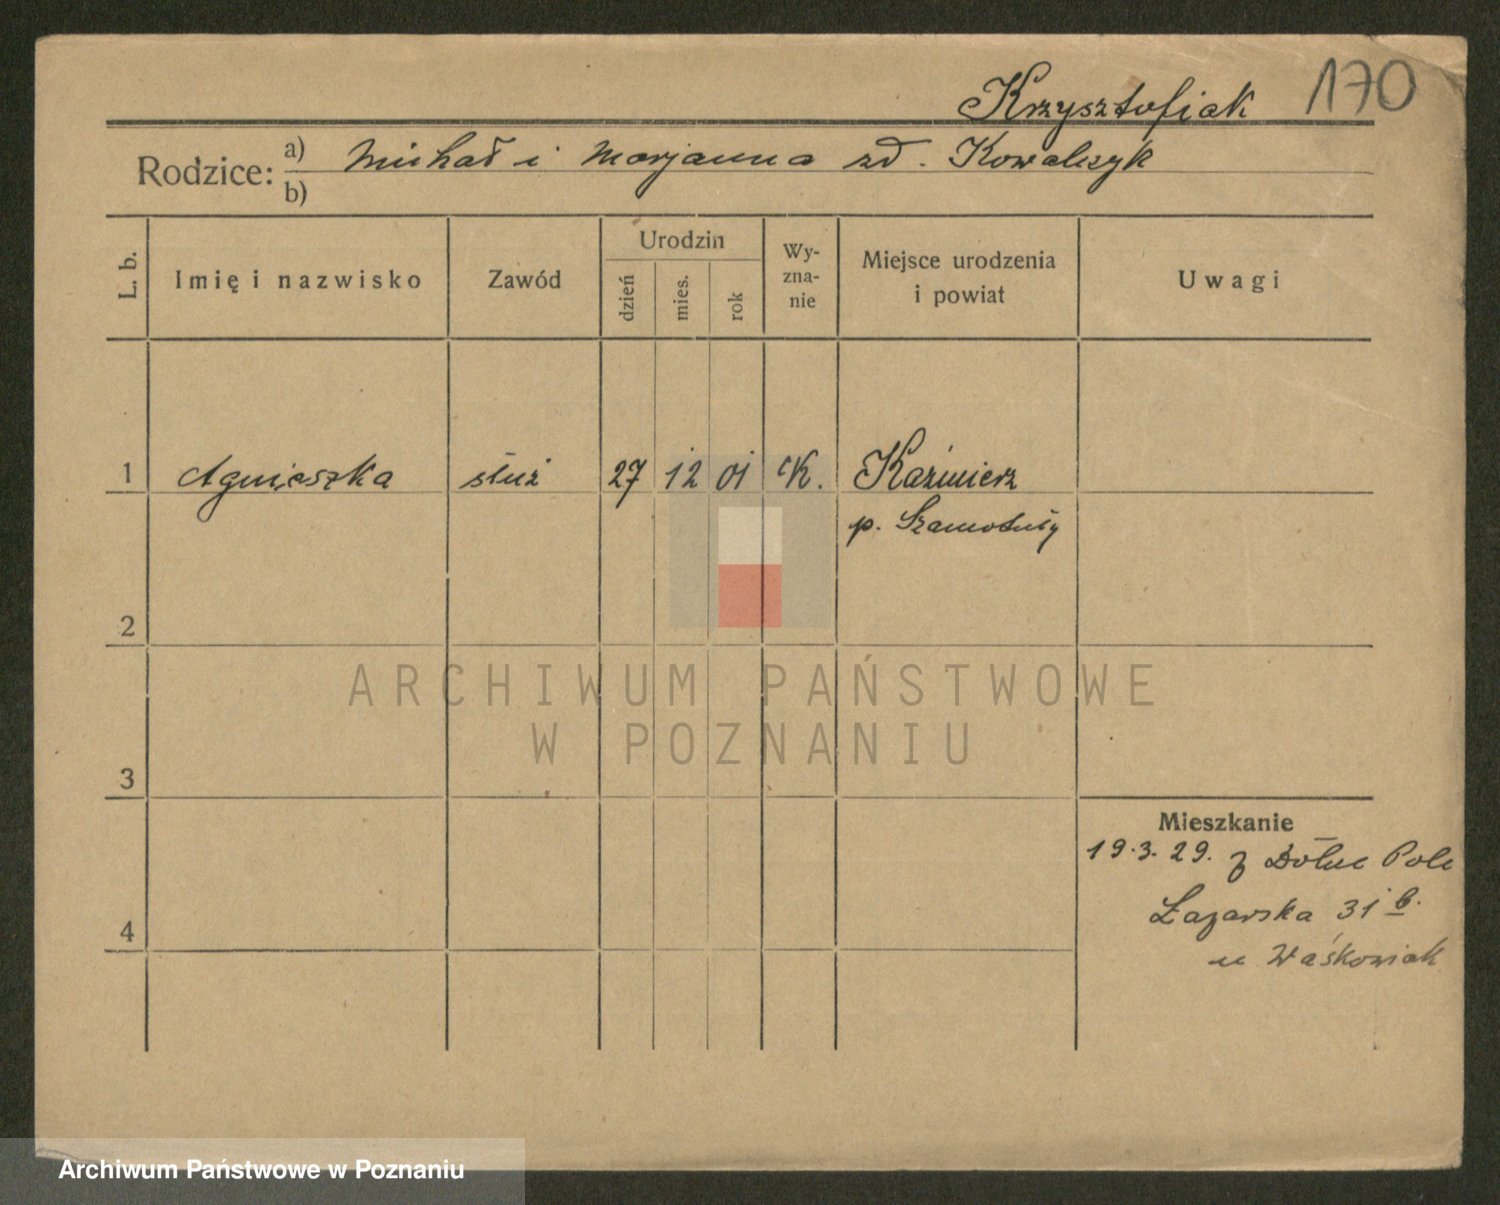 Krzysztofiak 170
Rodzice: a) Michał i Marjanna zd. Kowalczyk
b)
L. b.
Imię i nazwisko
Zawód
Urodzin
dzień
mies.
rok
Wy-
zna-
nie
Miejsce urodzenia
i powiat
Uwagi
1 Agnieszka służ 27 12 01 K. Kaźmierz
p. Szamotuły
2
ARCHIWUM PAŃSTWOWE
W POZNANIU
3
Mieszkanie
19.3.29. z Dólne Pole
4 Łazarska 31 b.
u Waśkowiak
Archiwum Państwowe w Poznaniu